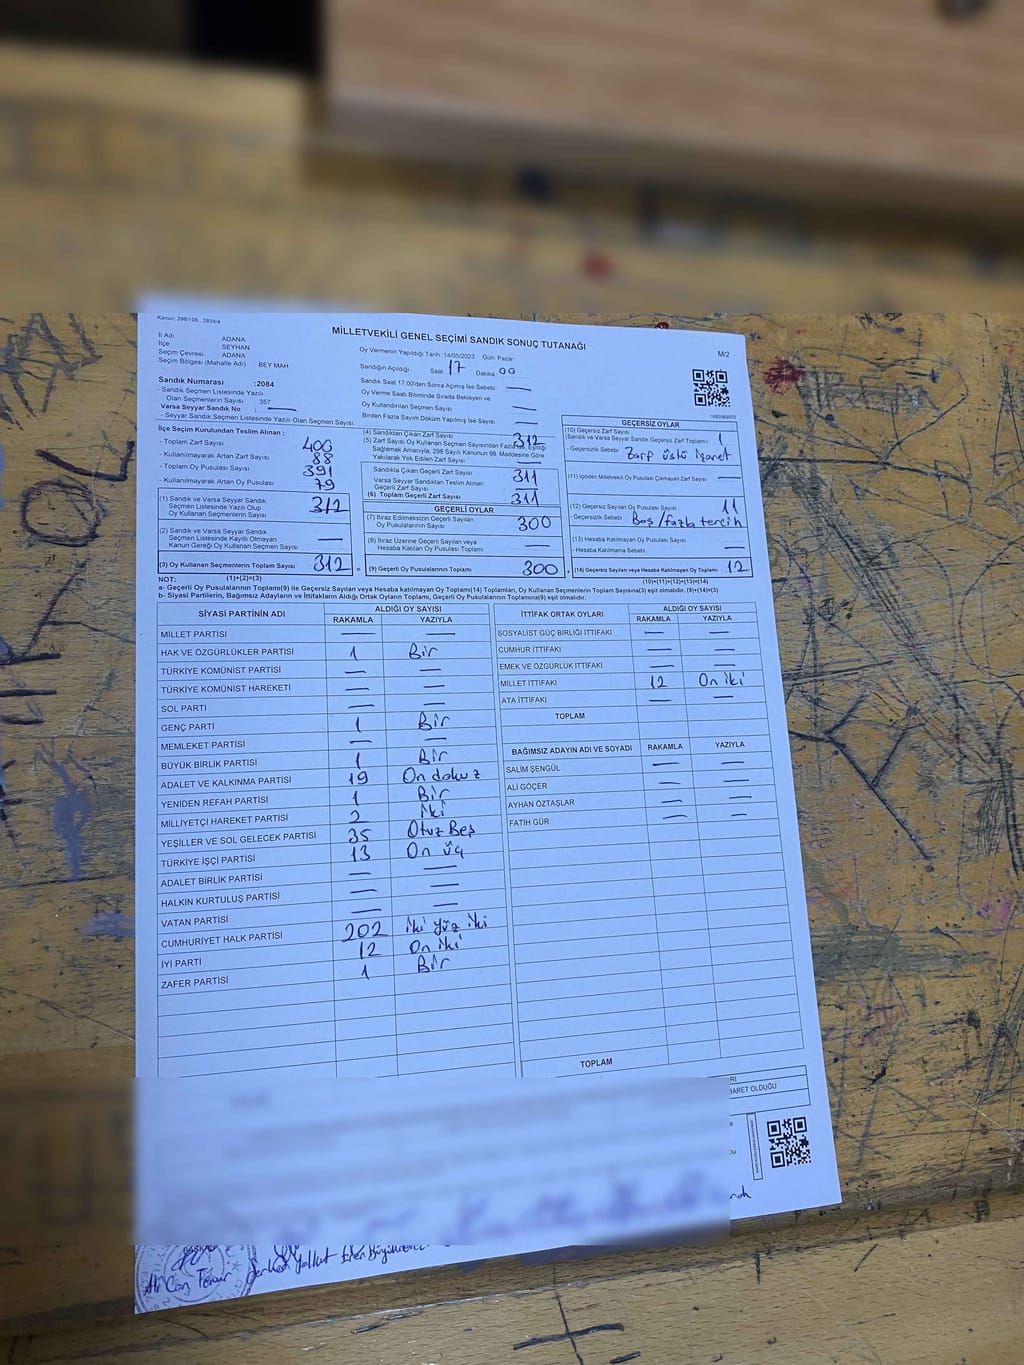 Kanun: 298/105 , 2839/4
MİLLETVEKİLİ GENEL SEÇİMİ SANDIK SONUÇ TUTANAĞI
M/2
İl Adı : ADANA
İlçe : SEYHAN
Seçim Çevresi : ADANA
Seçim Bölgesi (Mahalle Adı) BEY MAH
Oy Vermenin Yapıldığı Tarih :14/05/2023 Gün: Pazar
Sandığın Açıldığı Saat 17 Dakika 00
Sandık Saat 17:00'den Sonra Açılmış İse Sebebi —
Oy Verme Saati Bitiminde Sırada Bekleyen ve
Oy Kullandırılan Seçmen Sayısı —
Birden Fazla Sayım Döküm Yapılmış İse Sayısı —
Sandık Numarası :2084
- Sandık Seçmen Listesinde Yazılı
Olan Seçmenlerin Sayısı : 357
Varsa Seyyar Sandık No : —
- Seyyar Sandık Seçmen Listesinde Yazılı Olan Seçmen Sayısı
İlçe Seçim Kurulundan Teslim Alınan ;
- Toplam Zarf Sayısı 400
- Kullanılmayarak Artan Zarf Sayısı 88
- Toplam Oy Pusulası Sayısı 391
- Kullanılmayarak Artan Oy Pusulası 79
(1) Sandık ve Varsa Seyyar Sandık
Seçmen Listesinde Yazılı Olup
Oy Kullanan Seçmenlerin Sayısı 312
(2) Sandık ve Varsa Seyyar Sandık
Seçmen Listesinde Kayıtlı Olmayan
Kanun Gereği Oy Kullanan Seçmen Sayısı —
(3) Oy Kullanan Seçmenlerin Toplam Sayısı 312
(1)+(2)=(3)
(4) Sandıktan Çıkan Zarf Sayısı 312
(5) Zarf Sayısı Oy Kullanan Seçmen Sayısından Fazla ise, Eşitliği
Sağlamak Amacıyla, 298 Sayılı Kanunun 98. Maddesine Göre
Yakılarak Yok Edilen Zarf Sayısı —
Sandıkta Çıkan Geçerli Zarf Sayısı 311
Varsa Seyyar Sandıktan Teslim Alınan
Geçerli Zarf Sayısı —
(6) Toplam Geçerli Zarf Sayısı 311
GEÇERLİ OYLAR
(7) İtiraz Edilmeksizin Geçerli Sayılan
Oy Pusulalarının Sayısı 300
(8) İtiraz Üzerine Geçerli Sayılan veya
Hesaba Katılan Oy Pusulası Toplamı —
= (9) Geçerli Oy Pusulalarının Toplamı 300
GEÇERSİZ OYLAR
(10) Geçersiz Zarf Sayısı
(Sandık ve Varsa Seyyar Sandık Geçersiz Zarf Toplamı) 1
- Geçersizlik Sebebi Zarf üstü işaret
(11) İçinden Milletvekili Oy Pusulası Çıkmayan Zarf Sayısı —
(12) Geçersiz Sayılan Oy Pusulası Sayısı 11
- Geçersizlik Sebebi Boş/fazla tercih
(13) Hesaba Katılmayan Oy Pusulası Sayısı
- Hesaba Katılmama Sebebi —
(14) Geçersiz Sayılan veya Hesaba Katılmayan Oy Toplamı 12
(10)+(11)+(12)+(13)=(14)
NOT:
a- Geçerli Oy Pusulalarının Toplamı(9) ile Geçersiz Sayılan veya Hesaba katılmayan Oy Toplamı(14) Toplamları, Oy Kullanan Seçmenlerin Toplam Sayısına(3) eşit olmalıdır. (9)+(14)=(3)
b- Siyasi Partilerin, Bağımsız Adayların ve İttifakların Aldığı Ortak Oyların Toplamı, Geçerli Oy Pusulalarının Toplamına(9) eşit olmalıdır.
SİYASİ PARTİNİN ADI ALDIĞI OY SAYISI
RAKAMLA YAZIYLA
MİLLET PARTİSİ — —
HAK VE ÖZGÜRLÜKLER PARTİSİ 1 Bir
TÜRKİYE KOMÜNİST PARTİSİ — —
TÜRKİYE KOMÜNİST HAREKETİ — —
SOL PARTİ — —
GENÇ PARTİ 1 Bir
MEMLEKET PARTİSİ — —
BÜYÜK BİRLİK PARTİSİ 1 Bir
ADALET VE KALKINMA PARTİSİ 19 On dokuz
YENİDEN REFAH PARTİSİ 1 Bir
MİLLİYETÇİ HAREKET PARTİSİ 2 iki
YEŞİLLER VE SOL GELECEK PARTİSİ 35 Otuz Beş
TÜRKİYE İŞÇİ PARTİSİ 13 On üç
ADALET BİRLİK PARTİSİ — —
HALKIN KURTULUŞ PARTİSİ — —
VATAN PARTİSİ — —
CUMHURİYET HALK PARTİSİ 202 iki yüz iki
İYİ PARTİ 12 On iki
ZAFER PARTİSİ 1 Bir
İTTİFAK ORTAK OYLARI ALDIĞI OY SAYISI
RAKAMLA YAZIYLA
SOSYALİST GÜÇ BİRLİĞİ İTTİFAKI — —
CUMHUR İTTİFAKI — —
EMEK VE ÖZGÜRLÜK İTTİFAKI — —
MİLLET İTTİFAKI 12 On iki
ATA İTTİFAKI — —
TOPLAM
BAĞIMSIZ ADAYIN ADI VE SOYADI RAKAMLA YAZIYLA
SALİM ŞENGÜL — —
ALİ GÖÇER — —
AYHAN ÖZTAŞLAR — —
FATİH GÜR — —
TOPLAM
BARET OLDUĞU